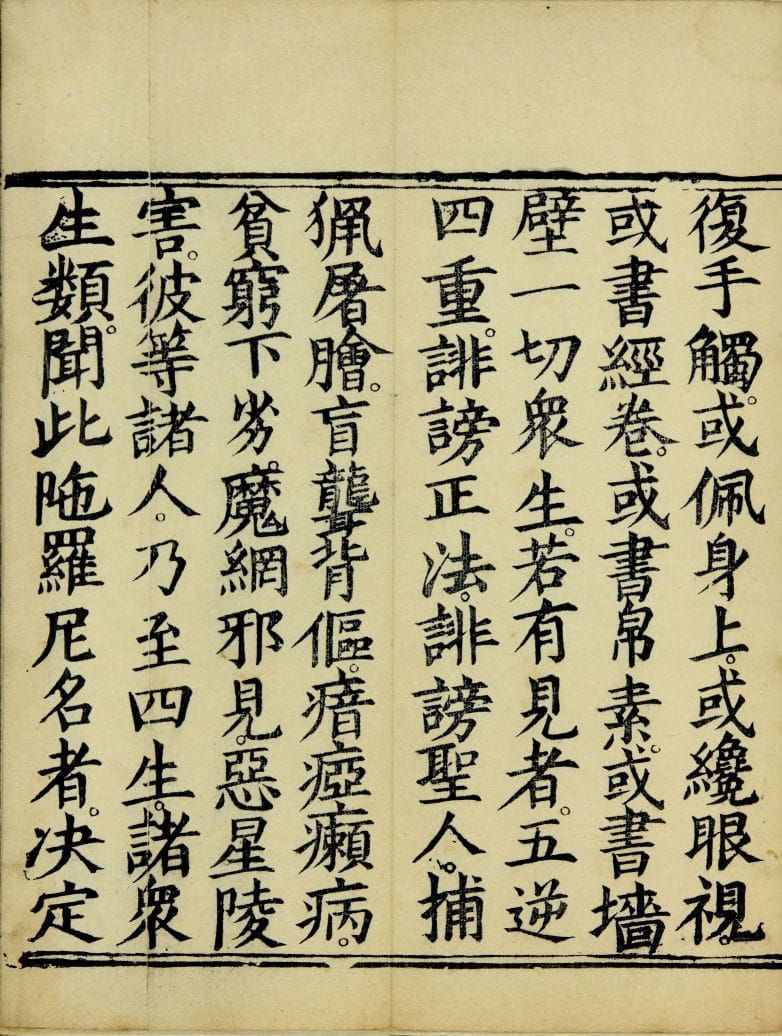 復手觸。或佩身上。或纔眼視。
或書經卷。或書帛素。或書墻
壁一切衆生。若有見者。五逆
四重。誹謗正法。誹謗聖人。捕
猟屠膾。盲聾背傴。瘖瘂癩病。
貧窮下劣。魔網邪見。惡星陵
害。彼等諸人。乃至四生。諸衆
生類。聞此陁羅尼名者。决定